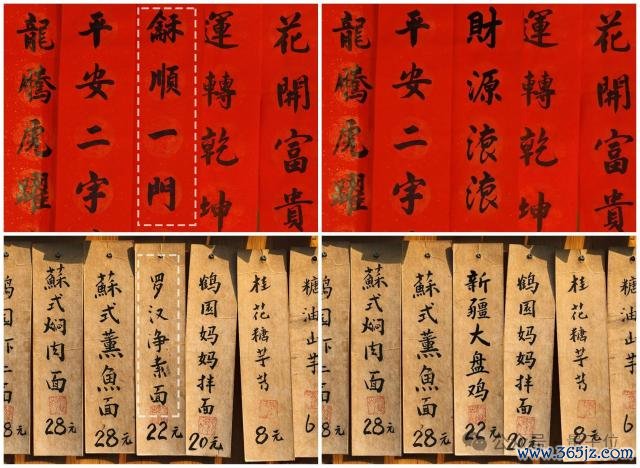 龍騰虎躍
平安二字
龢順一門
運轉乾坤
花開富貴
龍騰虎躍
平安二字
財源滾滾
運轉乾坤
花開富貴
8元
蘇式焖肉面
28元
蘇式薰魚面
28元
罗汉净素面
22元
鹤园妈妈拌面
20元
桂花糖芋艿
8元
糖油山芋
6
8元
蘇式焖肉面
28元
蘇式薰魚面
28元
新疆大盘鸡
22元
鹤园妈妈拌面
20元
桂花糖芋艿
8元
糖油山芋
6
www.365jz.com